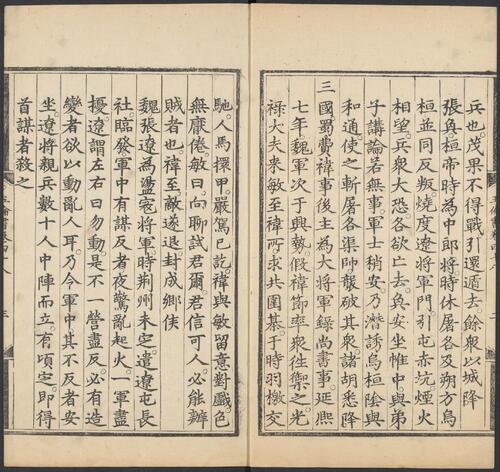 兵也。茂果不得戰引還遁去。餘衆以城降
張奐桓帝時為中郎將時休屠各及朔方烏
桓並同反叛燒度遼將軍門引屯赤坑煙火
相望。兵衆大恐。各欲亡去。奐安坐帷中與弟
子講論若無事。軍士稍安。乃潛誘烏桓陰與
和通使之斬屠各渠帥襲破其衆。諸胡悉降
三國蜀費禕事後主為大將軍錄尚書事。延熙
七年。魏軍次于興勢。假禕節率衆往禦之。光
祿大夫來敏至禕所求共圍棊。于時羽檄交
馳。人馬擐甲。嚴駕已訖。禕與敏留意對戲。色
無厭倦。敏曰。向聊試君爾。君信可人。必能辦
賊者也。禕至敵遂退。封成鄉侯
魏張遼為盪寇將軍時荊州未定。遣遼屯長
社。臨發軍中有謀反者。夜驚亂起火。一軍盡
擾。遼謂左右曰。勿動。是不一營盡反。必有造
變者。欲以動亂人耳。乃令軍中其不反者安
坐。遼將親兵數十人中陣而立。有頃定。即得
首謀者殺之